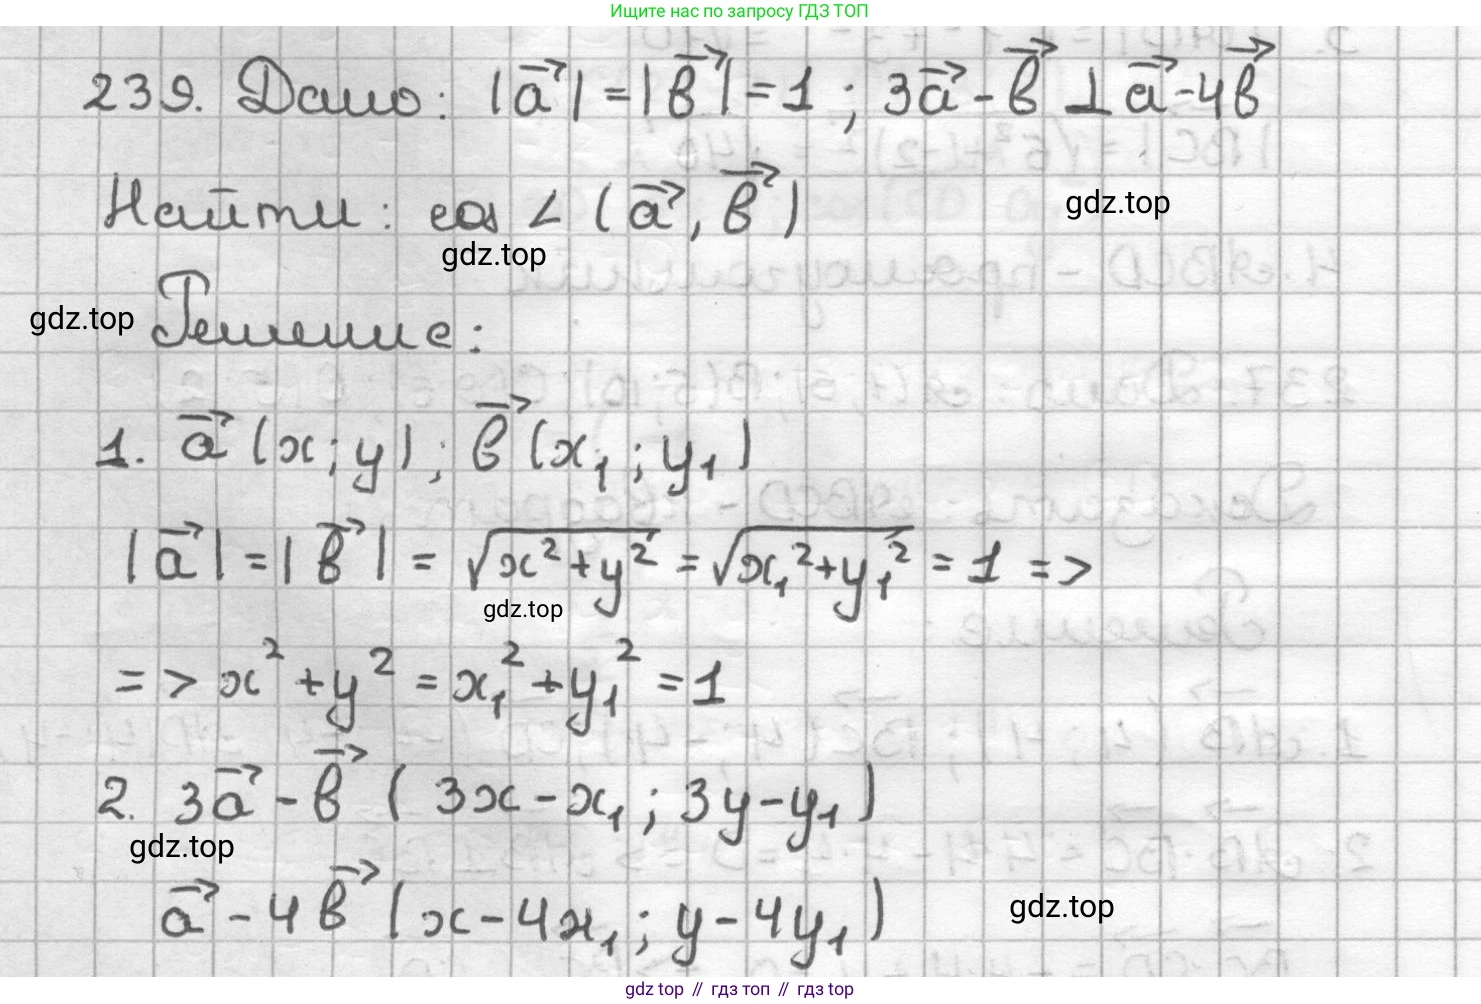 Ищите нас по запросу ГДЗ ТОП
239. Дано: |a⃗| = |b⃗| = 1 ; 3a⃗ - b⃗ ⊥ a⃗ - 4b⃗
Найти: cos ∠ (a⃗, b⃗)
gdz.top
gdz.top
gdz.top
Решение:
1. a⃗ (x; y) ; b⃗ (x₁ ; y₁)
|a⃗| = |b⃗| = √(x² + y²) = √(x₁² + y₁²) = 1 =>
gdz.top
=> x² + y² = x₁² + y₁² = 1
2. 3a⃗ - b⃗ ( 3x - x₁ ; 3y - y₁ )
gdz.top
a⃗ - 4b⃗ ( x - 4x₁ ; y - 4y₁ )
gdz.top
gdz top // гдз топ // гдз top